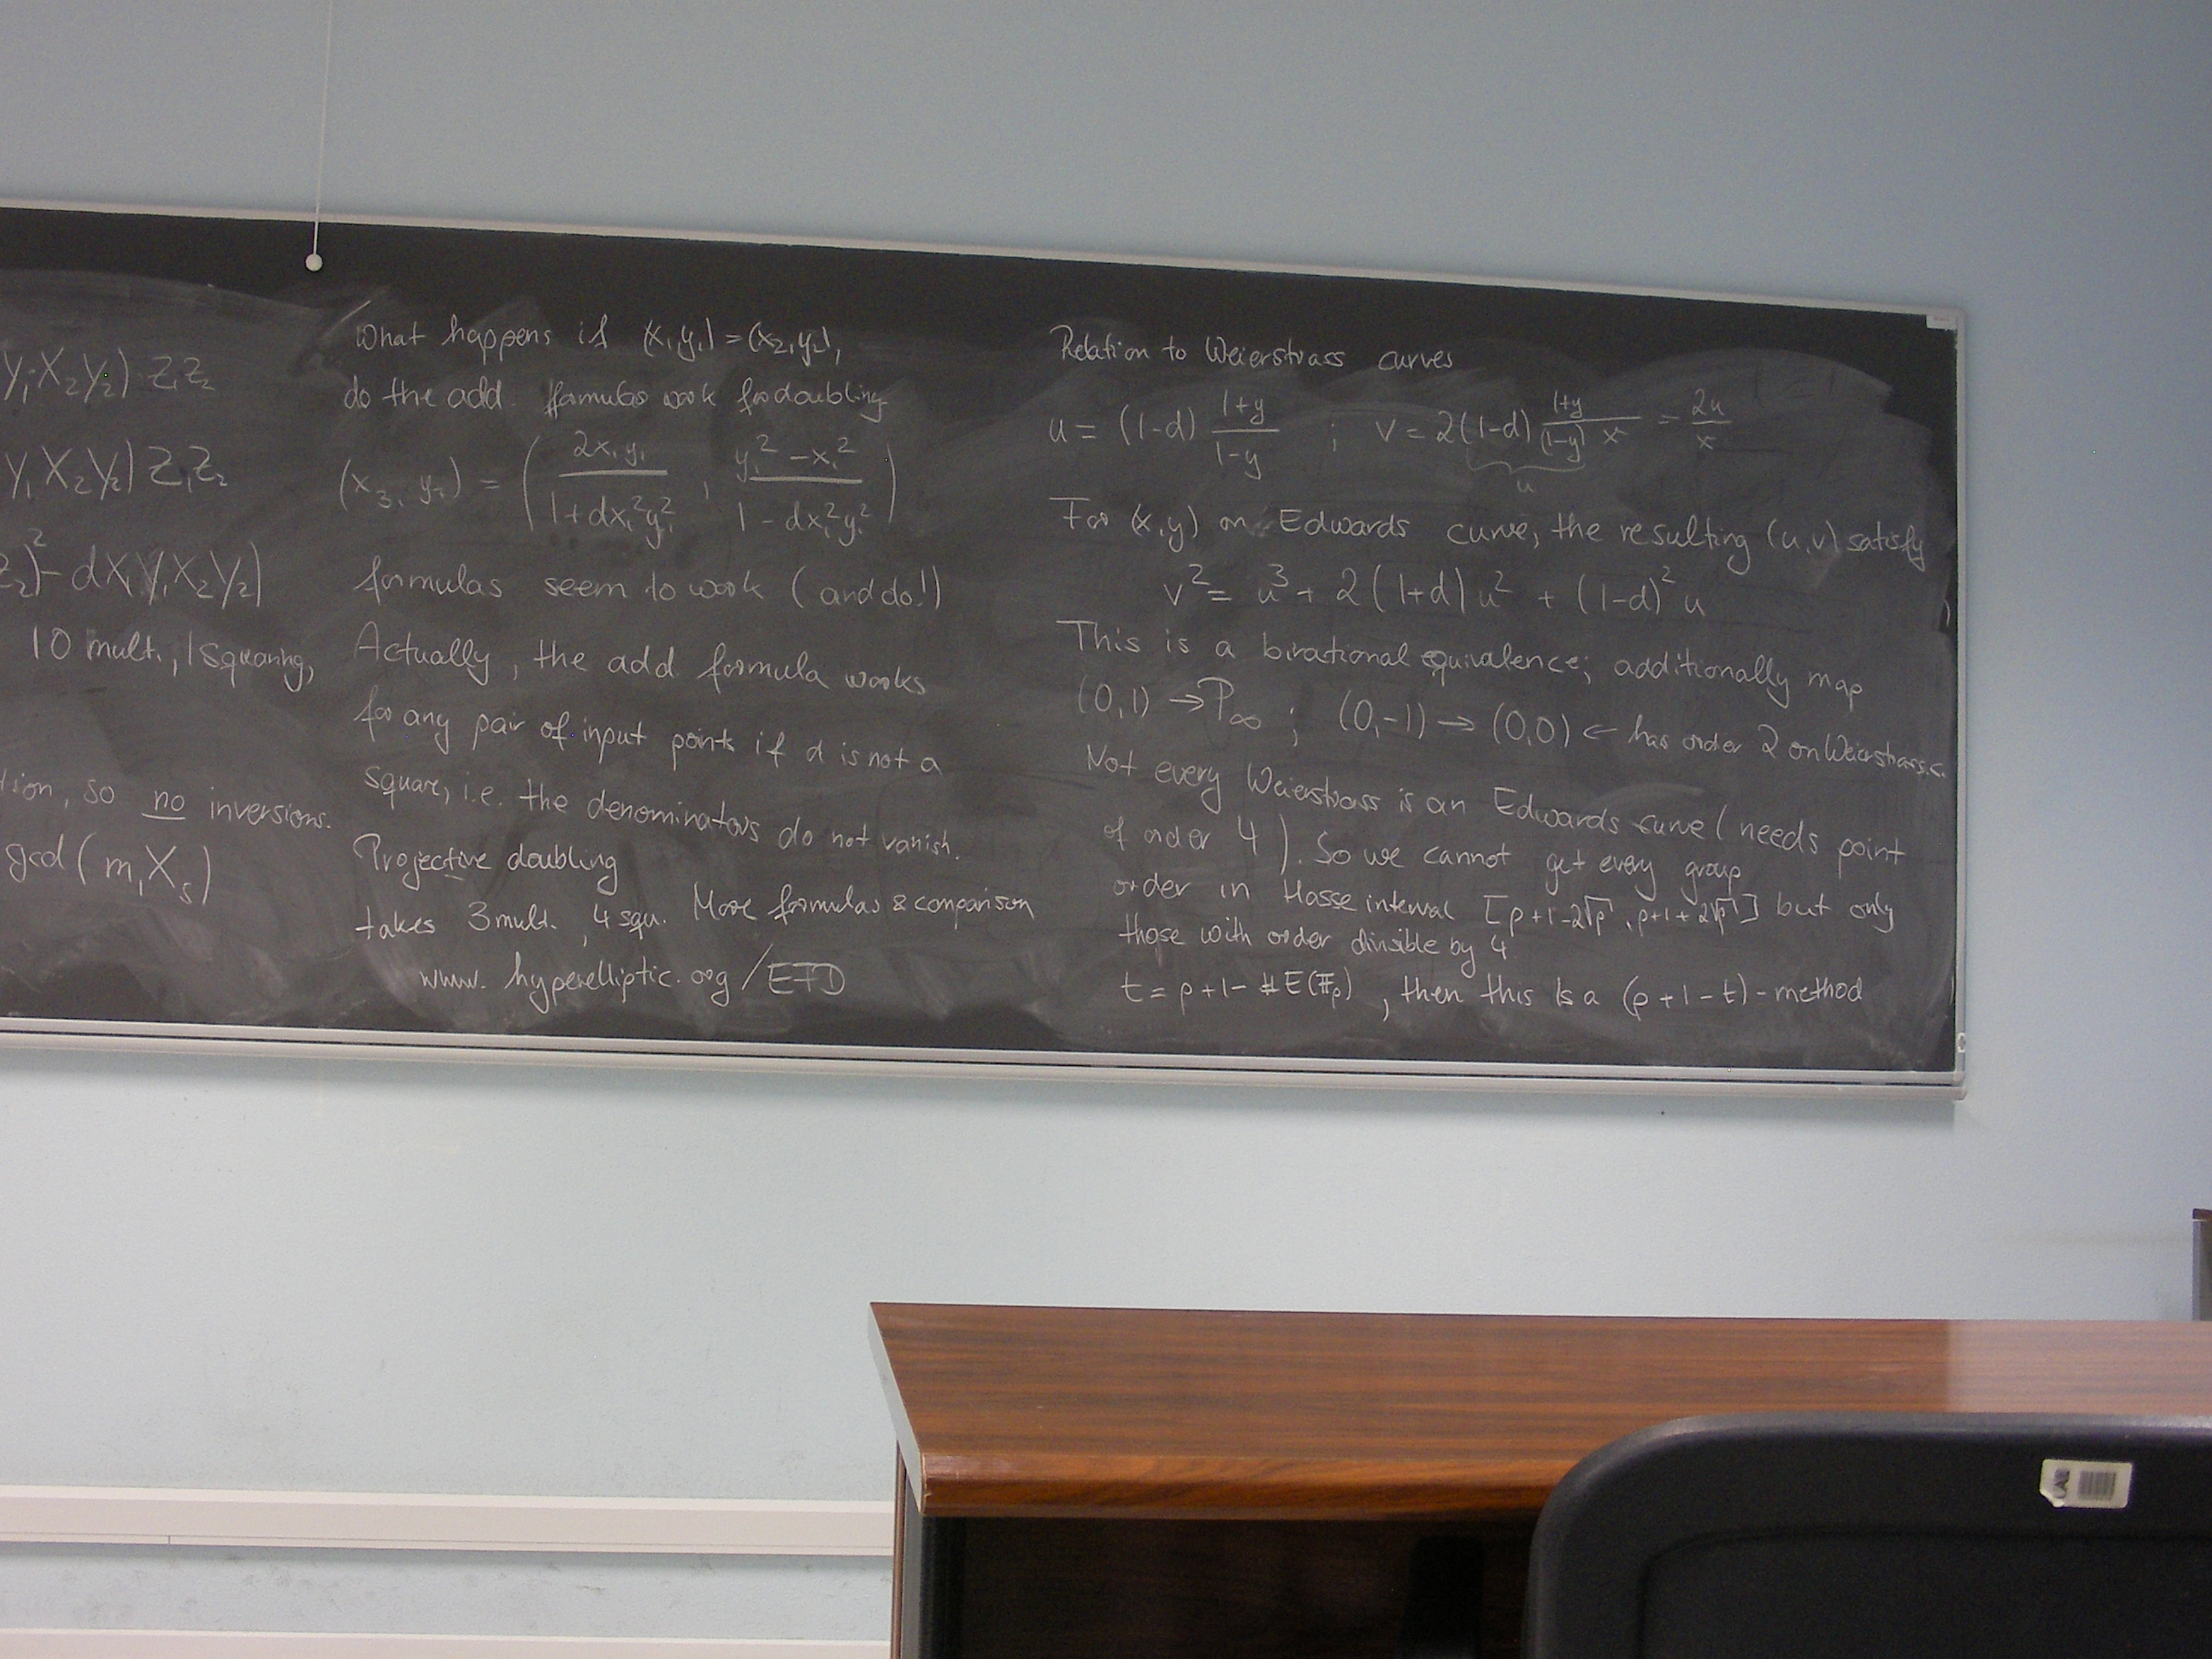 Y₁X₂Y₂) Z₁Z₂
Y₁X₂Y₂) Z₁Z₂
Z₂)² - dX₁Y₁X₂Y₂)
10 mult., 1 squaring,
tion, so no inversions.
gcd(m, X₅)
What happens if (x₁,y₁) = (x₂,y₂),
do the add. formulas work for doubling
(x₃, y₃) = ( 2x₁y₁ / 1+dx₁²y₁² , y₁² - x₁² / 1 - dx₁²y₁² )
formulas seem to work (and do!)
Actually, the add formula works
for any pair of input points if d is not a
square, i.e. the denominators do not vanish.
Projective doubling
takes 3 mult., 4 squ. More formulas & comparison
www.hyperelliptic.org/EFD
Relation to Weierstrass curves
u = (1-d) 1+y / 1-y ; v = 2(1-d) 1+y / (1-y) x = 2u / x
u
For (x,y) on Edwards curve, the resulting (u,v) satisfy
v² = u³ + 2(1+d)u² + (1-d)²u
This is a birational equivalence; additionally map
(0,1) → P∞ ; (0,-1) → (0,0) ← has order 2 on Weierstrass c.
Not every Weierstrass is an Edwards curve (needs point
of order 4). So we cannot get every group
order in Hasse interval [p+1-2√p, p+1+2√p] but only
those with order divisible by 4
t = p+1 - #E(𝔽ₚ), then this is a (p+1-t)-method